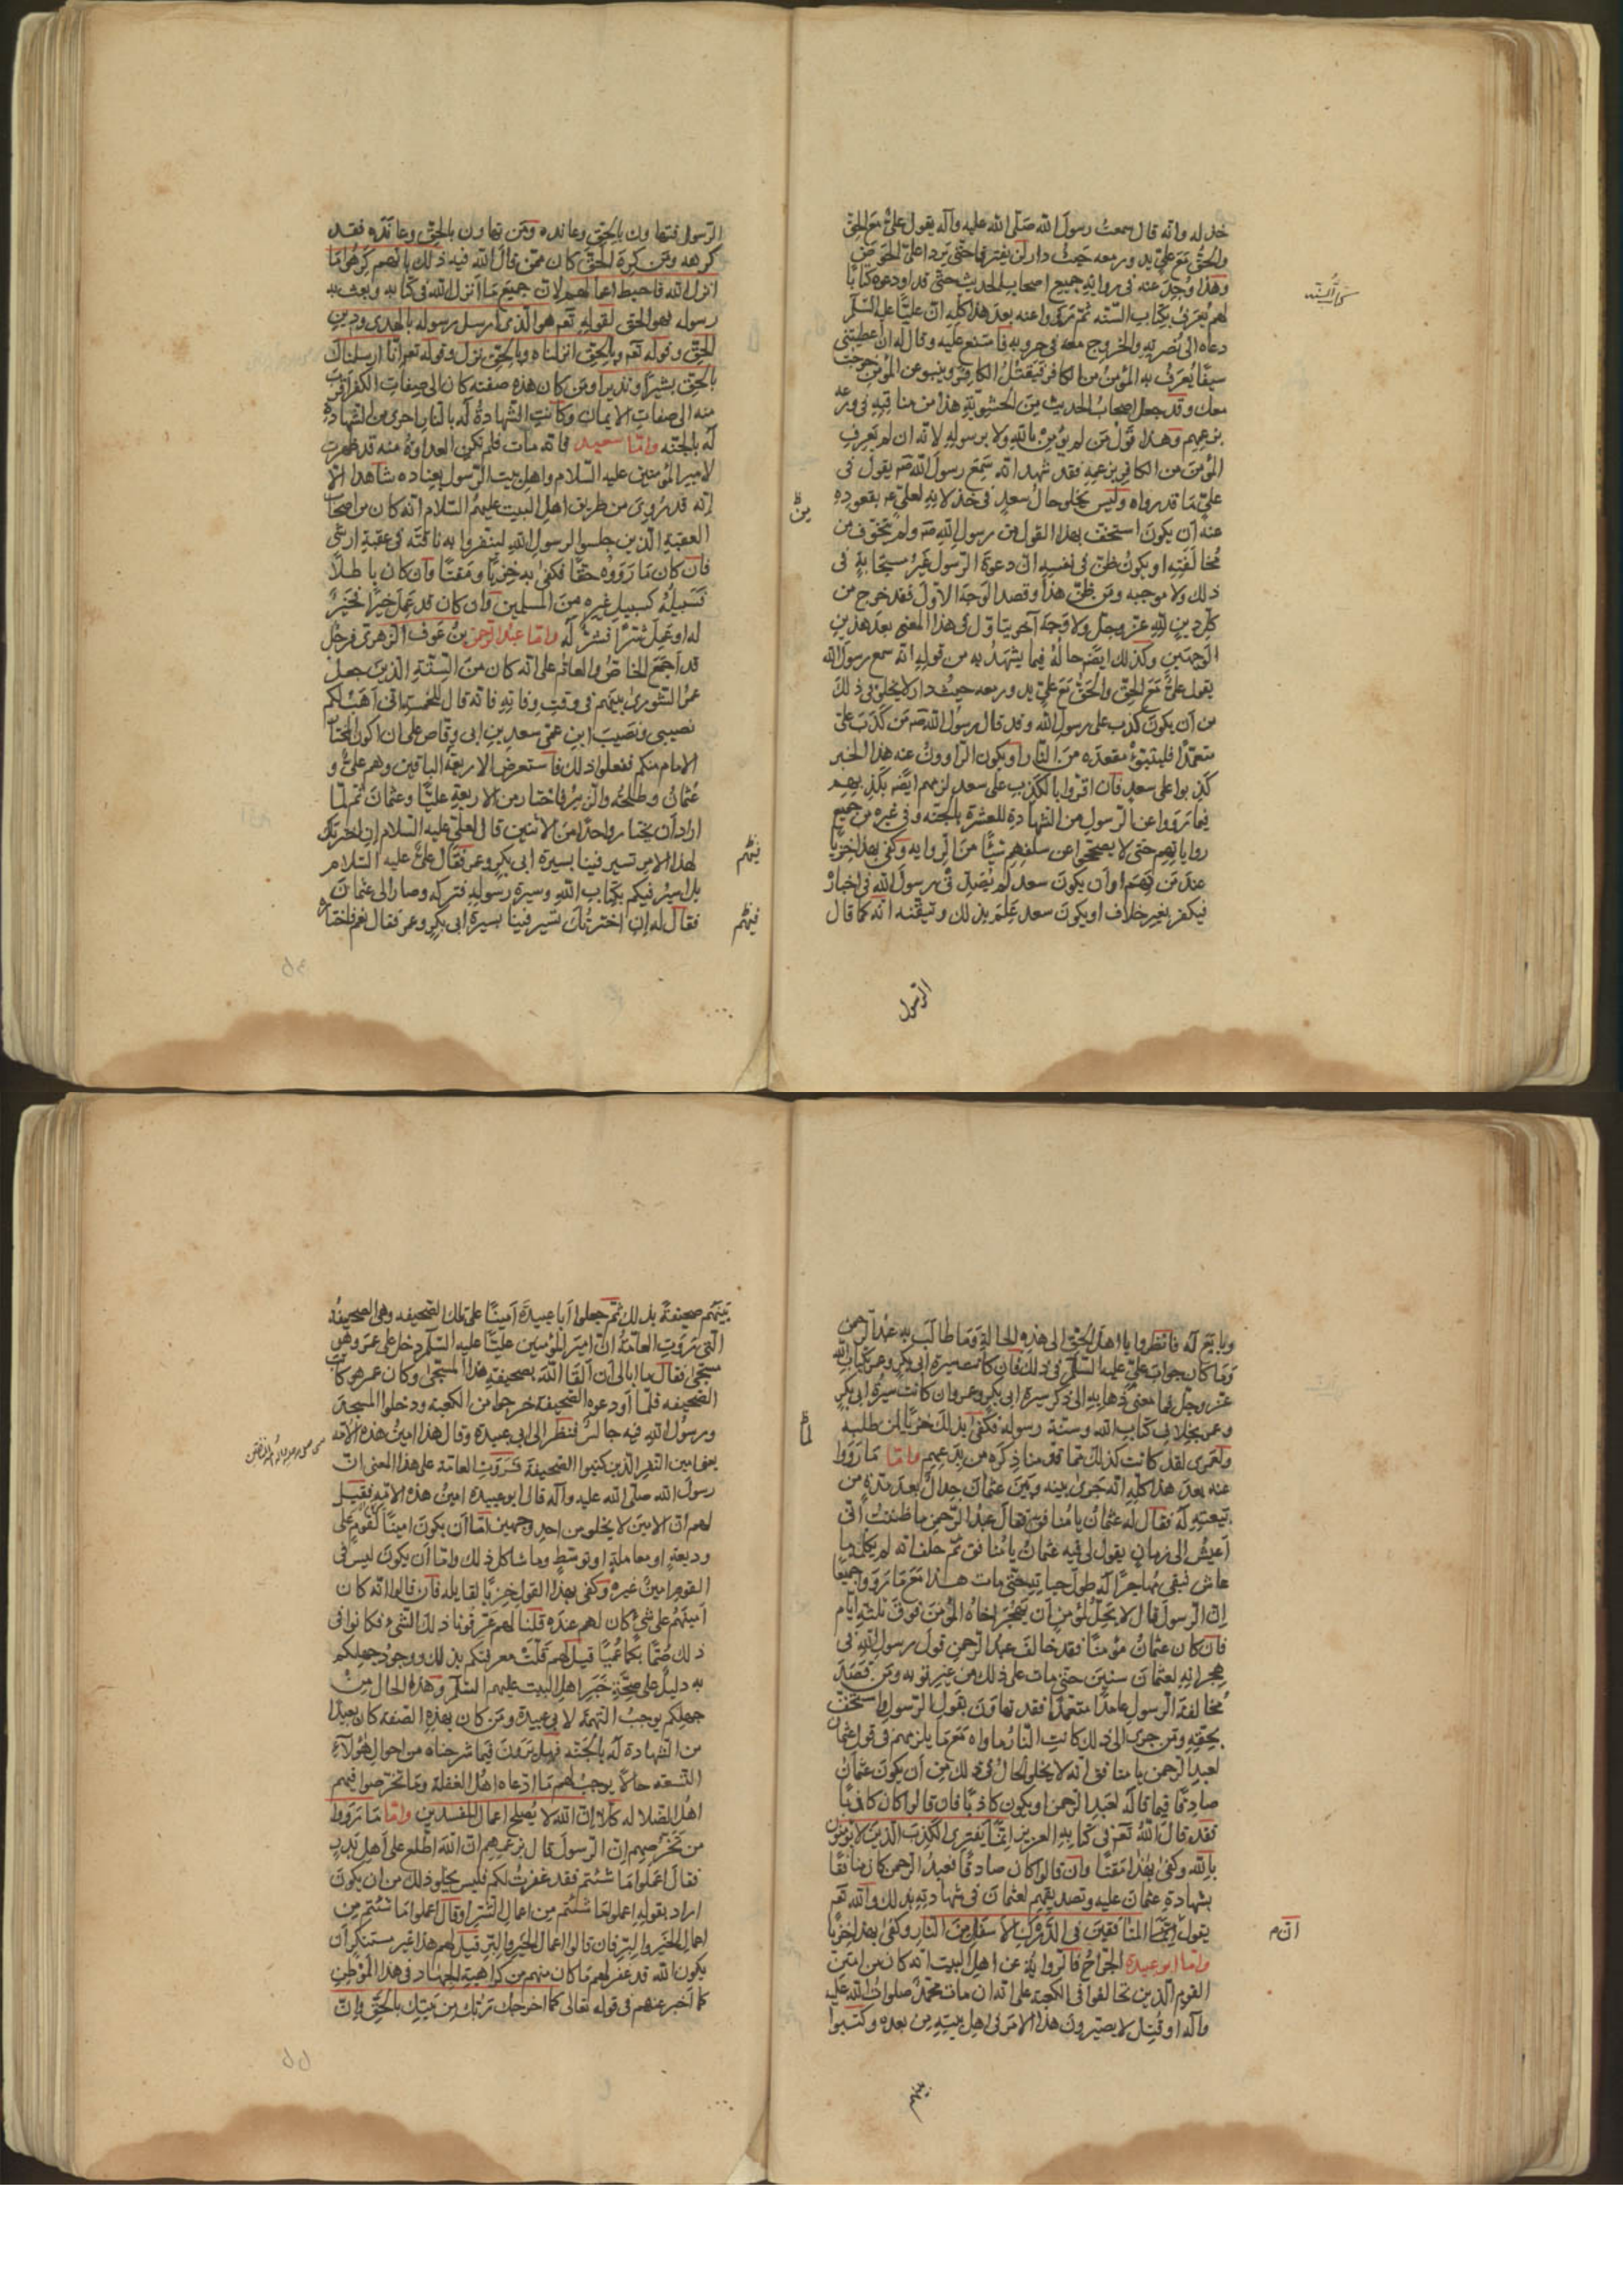 خذله وانه قال سمعت رسول الله صلى الله عليه وآله يقول علي مع الحق
والحق مع علي يدور معه حيث دار لن يفترقا حتى يردا علي الحوض
وهذا وجد عنه في رواية جميع اصحاب الحديث حتى قد اودعوه كتابا
لهم يعرف بكتاب السنه ثم رووا عنه بعد هذا كله ان عليا عليه السلم
دعاه الى نصرته والخروج معه في حروبه فامتنع عليه وقال له ان اعطيتني
سيفا يعرف به المؤمن من الكافر فيقتل الكافر وينبو عن المؤمن خرجت
معك وقد جعل اصحاب الحديث من الحشوية هذا من مناقبه في ورعه
بزعمهم وهذا قول من لم يؤمن بالله ولا برسوله لانه ان لم يعرف
المؤمن من الكافر بزعمه فقد شهد انه سمع رسول الله صه يقول في
علي ما قد رواه وليس يخلو حال سعد في خذلانه لعلي عم بقعوده
عنه ان يكون استخف بهذا القول من رسول الله صه ولم يتخوف من
مخالفته او يكون ظن في نفسه ان دعوة الرسول غير مستجابة في
ذلك ولا موجبه ومن ظن هذا وقصد الوجه الاول فقد خرج من
كل دين لله عز وجل ولا وجه آخر يتاول في هذا المعنى بعد هذين
الوجهين وكذلك ايضه حاله فيما يشهد به من قوله انه سمع رسول الله
يقول علي مع الحق والحق مع علي يدور معه حيث دار لا يخلو في ذلك
من ان يكون كذب على رسول الله وقد قال رسول الله صه من كذب علي
متعمدا فليتبوء مقعده من النار او يكون الراوون عنه هذا الخبر
كذبوا على سعد فان اقروا بالكذب على سعد لزمهم ايضه بكذبهم
فيما رووا عن الرسول من الشهادة للعشرة بالجنه وفي غيره من جميع
رواياتهم حتى لا يصححوا عن سلفهم شيئا من الروايه وكفى بهذا خزيا
عند من فهم او ان يكون سعد لم يصدق رسول الله في اخباره
فيكفر بغير خلاف او يكون سعد علم بذلك وتيقنه انه كما قال
الرسول
الرسول فتهاون بالحق وعانده ومن تهاون بالحق وعانده فقد
كرهه ومن كره الحق كان ممن قال الله فيه ذلك بانهم كرهوا ما
انزل الله فاحبط اعمالهم لان جميع ما انزل الله في كتابه وبعث به
رسوله فهو الحق لقوله تعم هو الذي ارسل رسوله بالهدى ودين
الحق وقوله تعم وبالحق انزلناه وبالحق نزل وقوله تعم انا ارسلناك
بالحق بشيرا ونذيرا ومن كان هذه صفته كان الى صفات الكفر اقرب
منه الى صفات الايمان وكانت الشهادة له بالنار احرى من الشهادة
له بالجنه واما سعيد فانه مات فلم تكن العداوة منه قد ظهرت
لامير المؤمنين عليه السلام واهل بيت الرسول بعناده شاهدا الا
انه قد روي من طريق اهل البيت عليهم السلام انه كان من اصحاب
العقبة الذين جلسوا لرسول الله لينفروا به ناقته في عقبة ارشي
فان كان ما رووه حقا فكفى به خزيا ومقتا وان كان باطلا
فسبيله كسبيل غيره من المسلمين وان كان قد عمل خيرا فخير
له او عمل شرا فشر له واما عبد الرحمن بن عوف الزهري فرجل
قد اجمع الخاص والعام على انه كان من الستة الذين جعل
عمر الشورى بينهم في وقت وفاته فانه قال للخمسة اني اهب لكم
نصيبي ونصيب ابن عمي سعد بن ابي وقاص على ان اكون المختار
الامام منكم ففعلوا ذلك فاستعرض الاربعة الباقين وهم علي و
عثمان وطلحة والزبير فاختار من الاربعة عليا وعثمان ثم لما
اراد ان يختار واحدا من الاثنين قال لعلي عليه السلام ان اخترتك
لهذا الامر تسير فينا بسيرة ابي بكر وعمر فقال علي عليه السلام
بل اسير فيكم بكتاب الله وسيرة رسوله فتركه وصار الى عثمان
فقال له ان اخترتك تسير فينا بسيرة ابي بكر وعمر فقال نعم فاختاره
وبايع له فانظروا يا اهل الحق الى هذه الحالة وما طالب به عبد الرحمن
وما كان جواب علي عليه السلم في ذلك فان كانت سيرة ابي بكر وعمر بكتاب الله
عز وجل فما معنى ذهابه الى ذكر سيرة ابي بكر وعمر وان كانت سيرة ابي بكر
وعمر بخلاف كتاب الله وسنة رسوله فكفى بذلك خزيا لمن طلبه
ولعمري لقد كانت كذلك مما قدمنا ذكره من بدعهم واما ما رووا
عنه بعد هذا كله انه جرى بينه وبين عثمان جدال بعد مدة من
بيعته له فقال له عثمان يا منافق فقال عبد الرحمن ما ظننت اني
اعيش الى زمان يقول لي فيه عثمان يا منافق ثم حلف انه لم يكلمه ما
عاش فبقي مهاجرا له طول حياته حتى مات هذا مع ما رووا جميعا
ان الرسول قال لا يحل لمؤمن ان يهجر اخاه المؤمن فوق ثلثة ايام
فان كان عثمان مؤمنا فقد خالف عبد الرحمن قول رسول الله في
هجرانه لعثمان سنين حتى مات على ذلك من غير توبه ومن قصد
مخالفة الرسول عامدا متعمدا فقد تهاون بقول الرسول واستخف
بحقه ومن جرى الى ذلك كانت النار ماواه مع ما يلزمهم في قول عثمان
لعبد الرحمن يا منافق انه لا يخلو الحال في ذلك من ان يكون عثمان
صادقا فيما قاله لعبد الرحمن او يكون كاذبا فان قالوا كان كاذبا
فقد قال الله تعم في كتابه العزيز انما يفتري الكذب الذين لا يؤمنون
بالله وكفى بهذا مقتا وان قالوا كان صادقا فعبد الرحمن كان منافقا
بشهادة عثمان عليه وتصديقهم لعثمان في شهادته بذلك والله تعم
يقول ان المنافقين في الدرك الاسفل من النار وكفى بهذا خزيا
واما ابو عبيدة الجراح فالرواية عن اهل البيت انه كان من امين
القوم الذين تحالفوا في الكعبة على انه ان مات محمد صلوات الله عليه
وآله او قتل لا يصيرون هذا الامر في اهل بيته من بعده وكتبوا
بينهم
بينهم صحيفة بذلك ثم جعلوا ابا عبيدة امينا على تلك الصحيفه وهي الصحيفة
التي روت العامة ان امير المؤمنين عليا عليه السلم دخل على عمر وهو
مسجى فقال ما ابالي ان القا الله بصحيفة هذا المسجى وكان عمر هو كاتب
الصحيفه فلما اودعوه الصحيفة خرجوا من الكعبة ودخلوا المسجد
ورسول الله فيه جالس فنظر الى ابي عبيدة وقال هذا امين هذه الامه
يعني امين النفر الذين كتبوا الصحيفة فروت العامة على هذا المعنى ان
رسول الله صلى الله عليه وآله قال ابو عبيدة امين هذه الامة فقيل
لهم ان الامين لا يخلو من احد وجهين اما ان يكون امينا لقوم على
وديعة او معاملة او توسط وما شاكل ذلك واما ان يكون ليس في
القوم امين غيره وكفى بهذا القول خزيا لقايله فان قالوا انه كان
امينهم على شيء كان لهم عنده قلنا لهم عرفونا ذلك الشيء فكانوا في
ذلك صما بكما عميا قيل لهم قلت معرفتكم بذلك ووجود جهلكم
به دليل على صحة خبر اهل البيت عليهم السلم وهذه الحال من
جهلكم يوجب التهمة لابي عبيدة ومن كان بهذه الصفة كان بعيدا
من الشهادة له بالجنه فهل ترون فيما شرحناه من احوال هؤلآء
التسعه حالا يوجب لهم ما ادعاه اهل الغفلة وما تخرصوا فيهم
اهل الضلاله كلا ان الله لا يصلح اعمال المفسدين واما ما رووا
من تخرصهم ان الرسول قال بزعمهم ان الله اطلع على اهل بدر
فقال اعملوا ما شئتم فقد غفرت لكم فليس يخلو ذلك من ان يكون
اراد بقوله اعملوا ما شئتم من اعمال الشر او قال اعملوا ما شئتم من
اعمال الخير والبر فان قالوا اعمال الخير والبر قيل لهم هذا غير مستنكر ان
يكون الله قد غفر لهم ما كان منهم من كراهية الجهاد في هذا الموطن
كما اخبر عنهم في قوله تعالى كما اخرجك ربك من بيتك بالحق وان